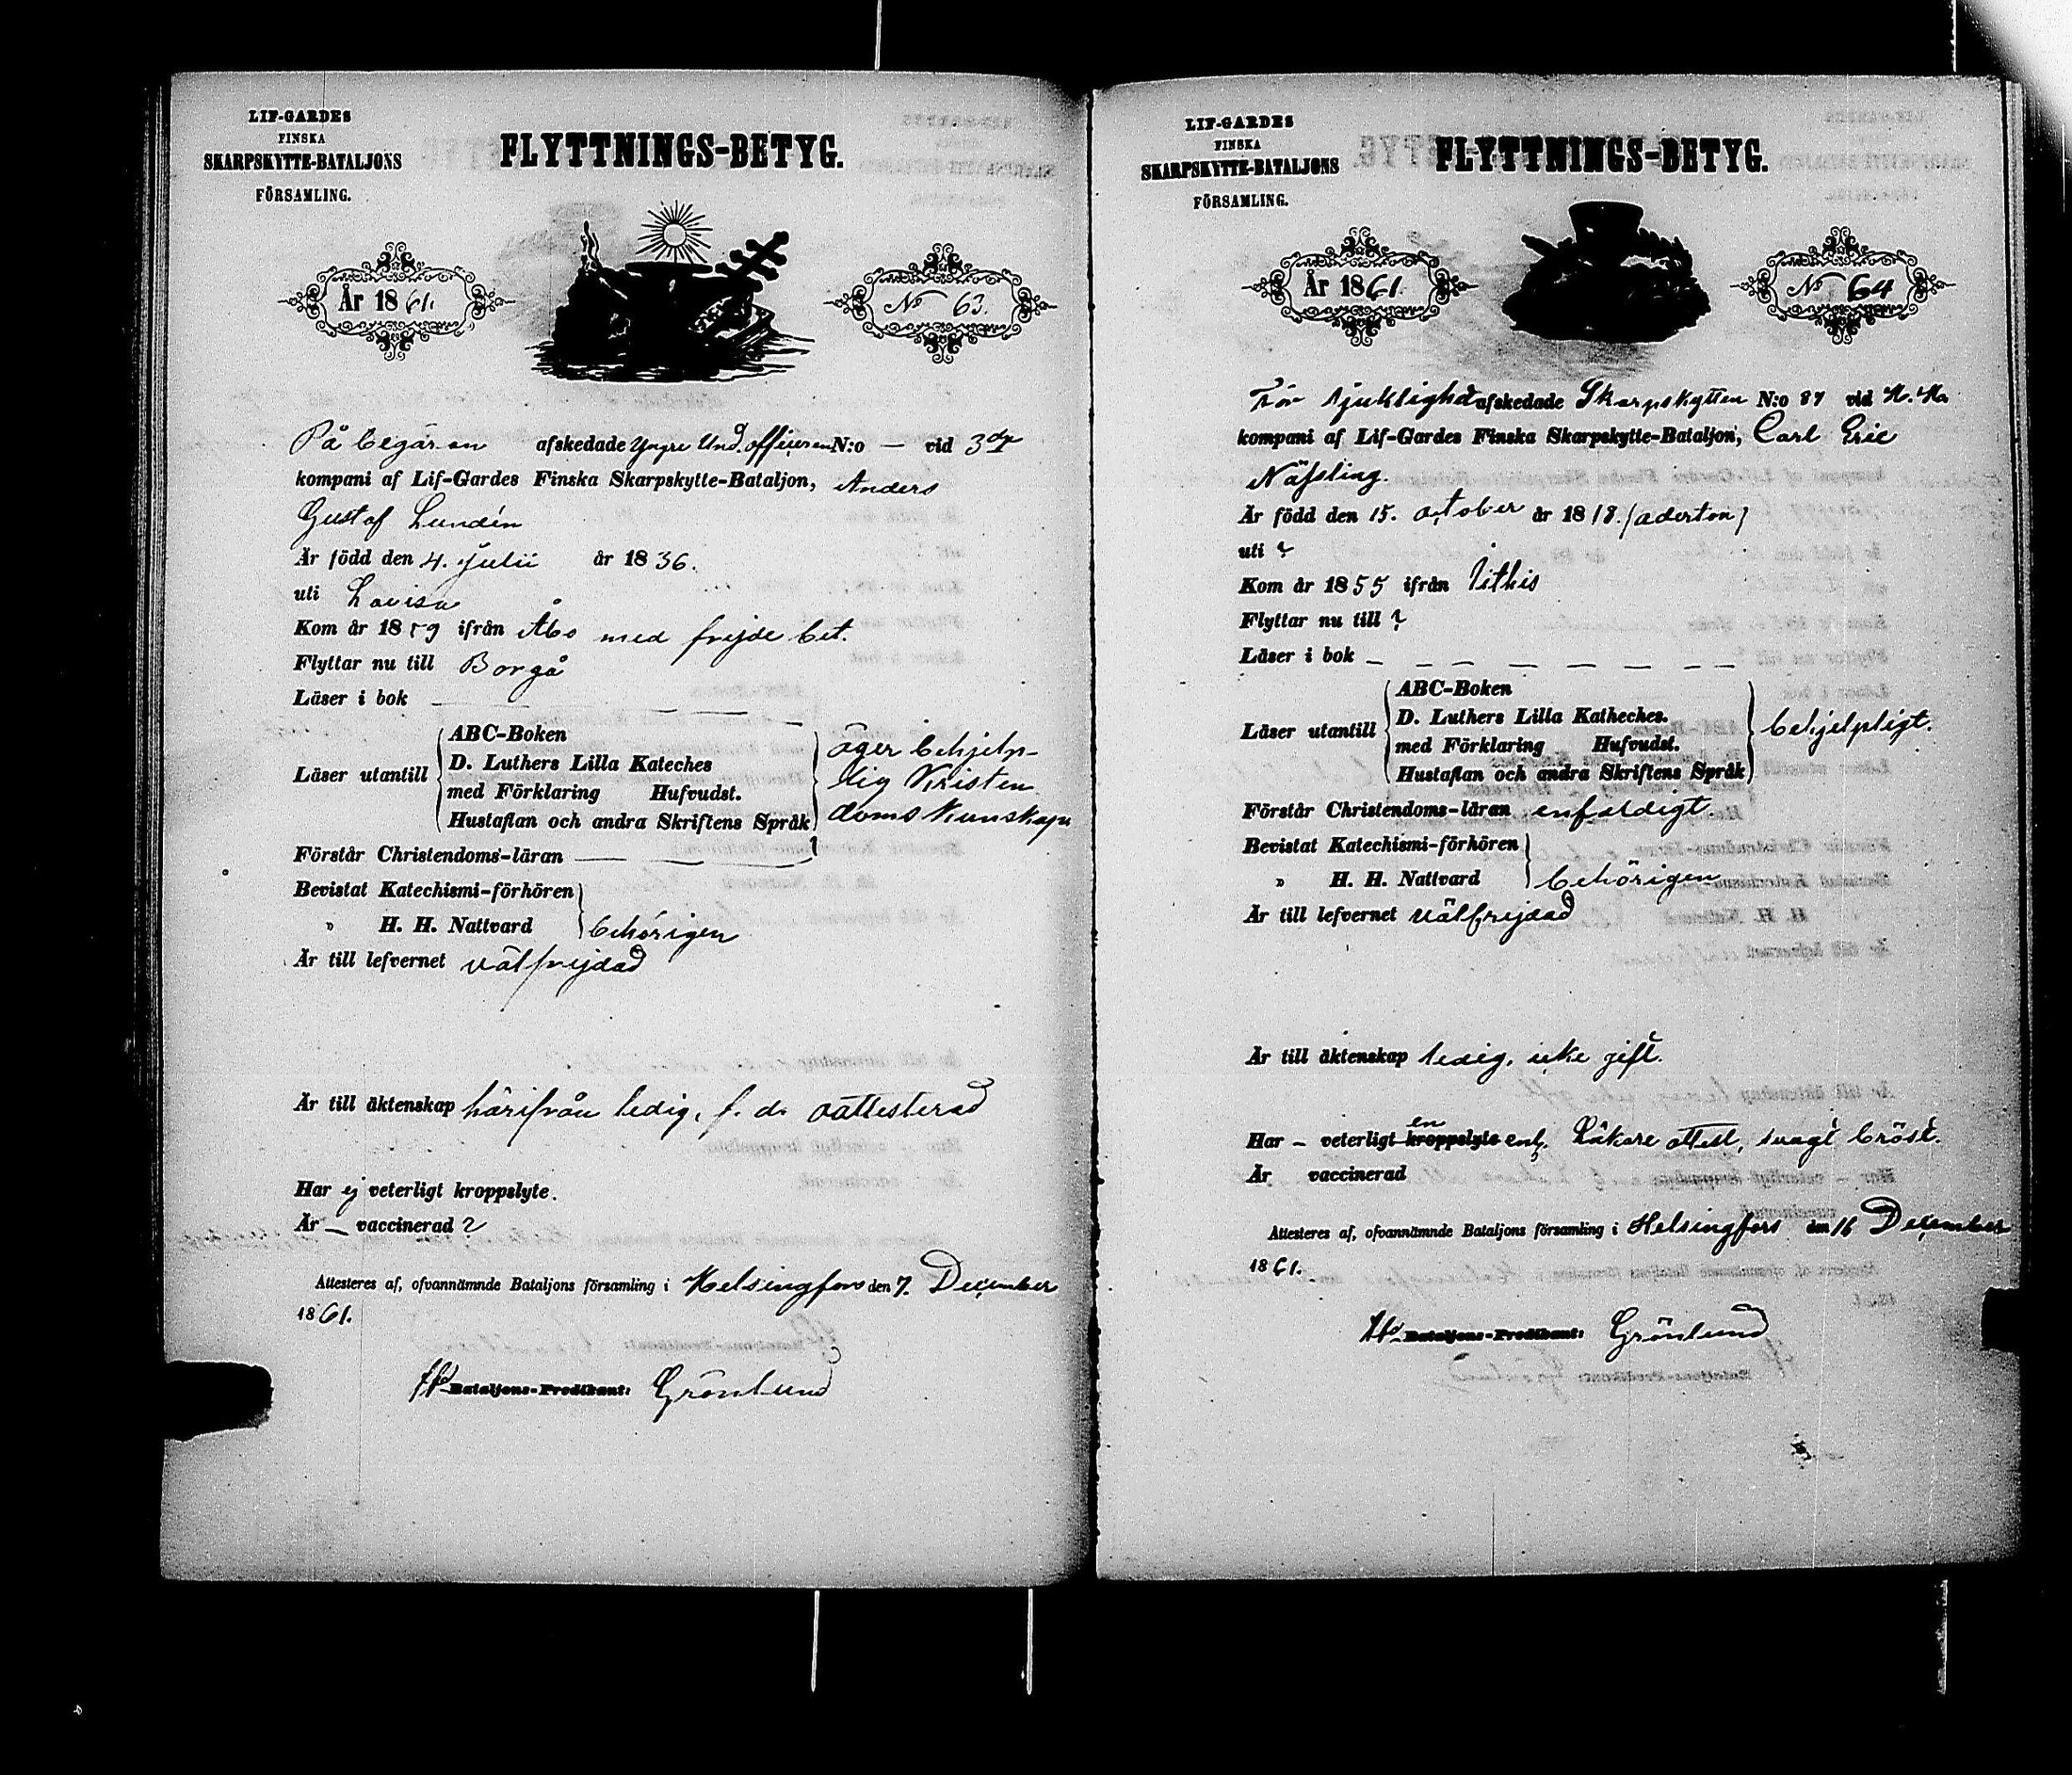 LIF-GARDES
FINSKA
SKARPSKYTTE-BATALJONS
FÖRSAMLING.
FLYTTNINGS-BETYG.
År 1861.
No 63.
På begäran afskedade Yngre Und.officeren N:o — vid 3dje
kompani af Lif-Gardes Finska Skarpskytte-Bataljon, Anders
Gustaf Lundén
Är född den 4. Julii år 1836.
uti Lovisa
Kom år 1859 ifrån Åbo med frejdebet.
Flyttar nu till Borgå
Läser i bok — — — — —
Läser utantill
ABC-Boken
D. Luthers Lilla Kateches
med Förklaring Hufvudst.
Hustaflan och andra Skriftens Språk
äger behjelp-
lig Kristen
doms kunskap
Förstår Christendoms-läran — — —
Bevistat Katechismi-förhören
" H. H. Nattvard
behörigen
Är till lefvernet välfrejdad
Är till äktenskap härifrån ledig, f. d. oattesterad
Har ej veterligt kroppslyte.
Är — vaccinerad?
Attesteres af, ofvannämnde Bataljons församling i Helsingfors den 7. December
1861.
Bataljons-Predikant: Grönlund
LIF-GARDES
FINSKA
SKARPSKYTTE-BATALJONS
FÖRSAMLING.
FLYTTNINGS-BETYG.
År 1861.
No 64
För sjuklighet afskedade Skarpskytten N:o 87 vid
kompani af Lif-Gardes Finska Skarpskytte-Bataljon, Carl Eric
Näsling.
Är född den 15. october år 1818. (aderton)
uti ?
Kom år 1855 ifrån Itthis
Flyttar nu till ?
Läser i bok — — — — — — —
Läser utantill
ABC-Boken
D. Luthers Lilla Katheches.
med Förklaring Hufvudst.
Hustaflan och andra Skriftens Språk
behjelpligt.
Förstår Christendoms-läran enfaldigt.
Bevistat Katechismi-förhören
" H. H. Nattvard
behörigen
Är till lefvernet välfrejdad
Är till äktenskap ledig, icke gift.
Har — veterligt kroppslyte en enl. Läkare attest, svagt bröst.
Är vaccinerad
Attesteres af, ofvannämnde Bataljons församling i Helsingfors den 16 December
1861.
Bataljons-Predikant: Grönlund